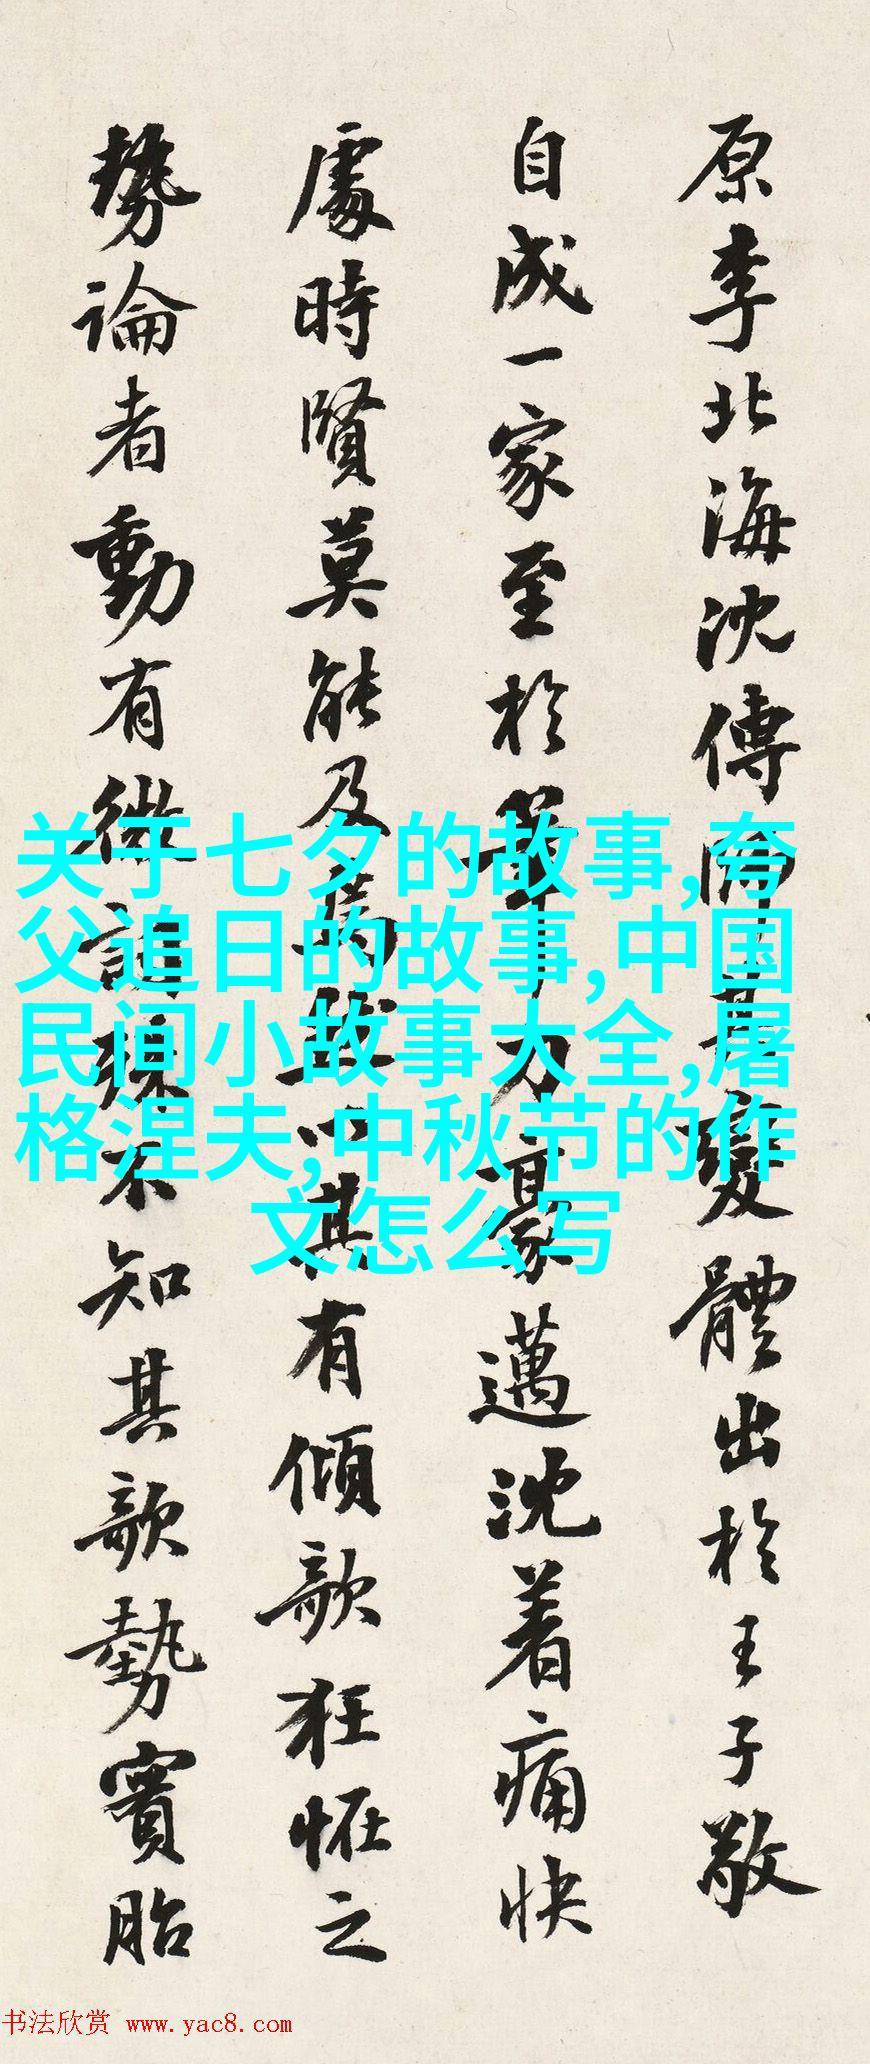 原李北海沈傳師其變體出於王子敬
自成一家至於筆力豪邁沈着痛快
處時賢莫能及焉故以其有傾欹狂怪之
勢論者動有微誚殊不知其欹勢實胎
关于七夕的故事,夸
父追日的故事,中国
民间小故事大全,屠
格涅夫,中秋节的作
文怎么写
书法欣赏 www.yac8.com